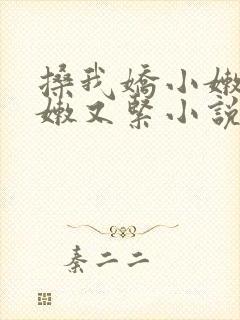 搡我嬌小嫩
嫩又緊小說
秦二二